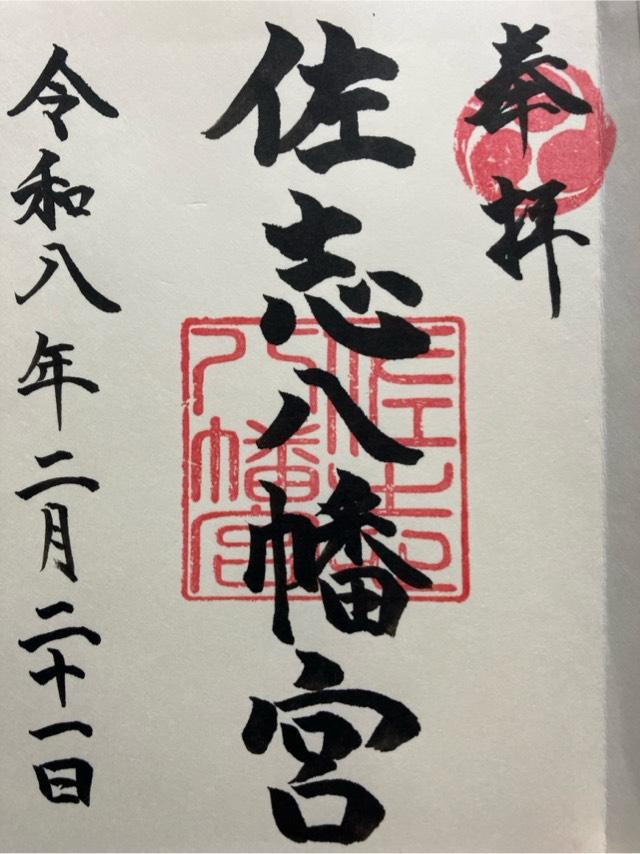 奉拝
佐志八幡宮
佐志八幡宮
令和八年二月二十一日